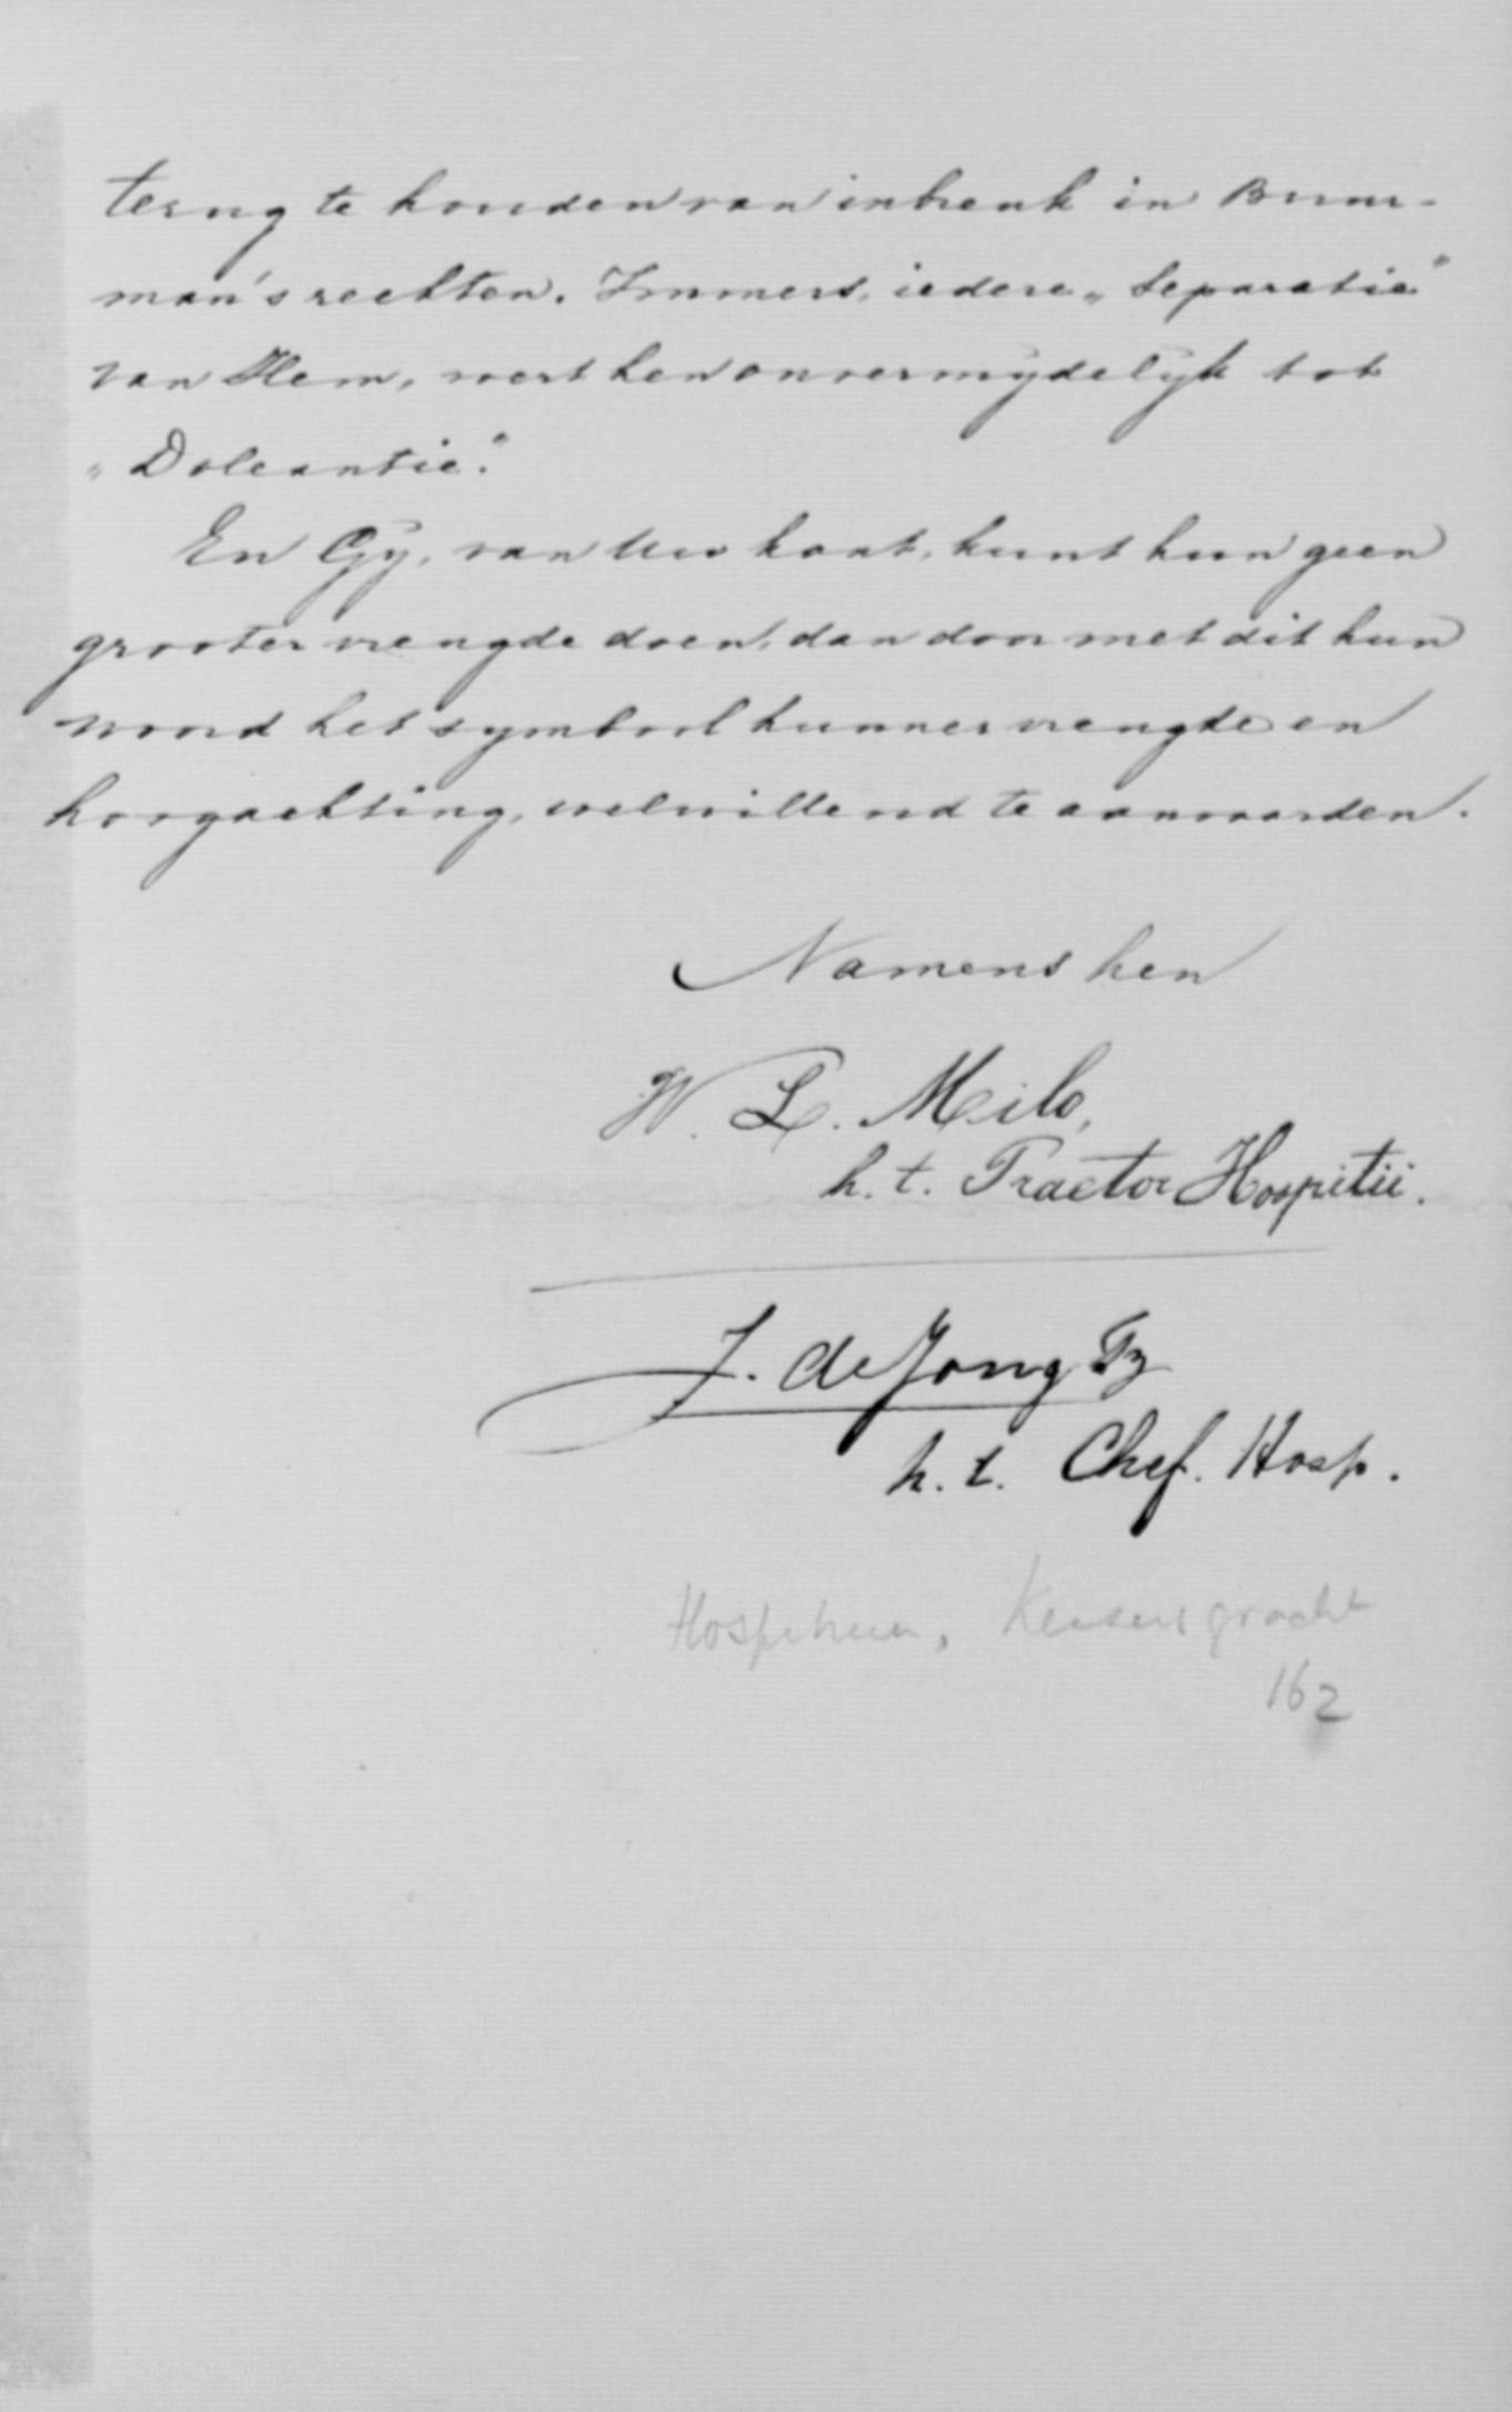 terug te houden van inbreuk in Buur-
man's rechten. Immers, iedere „Separatie"
van Hem, voert hen onvermydelyk tot
„Doleantie".
En Gy, van Uw kant, kunt hun geen
grooter vreugde doen, dan door met dit hun
woord het symbool hunner vreugde en
hoogachting, welwillend te aanvaarden.
Namens hen
W. L. Milo,
h. t. Praetor Hospitii.
J. de Jong Tz
h. t. Chef. Hosp.
Hospitium, Keizersgracht
162